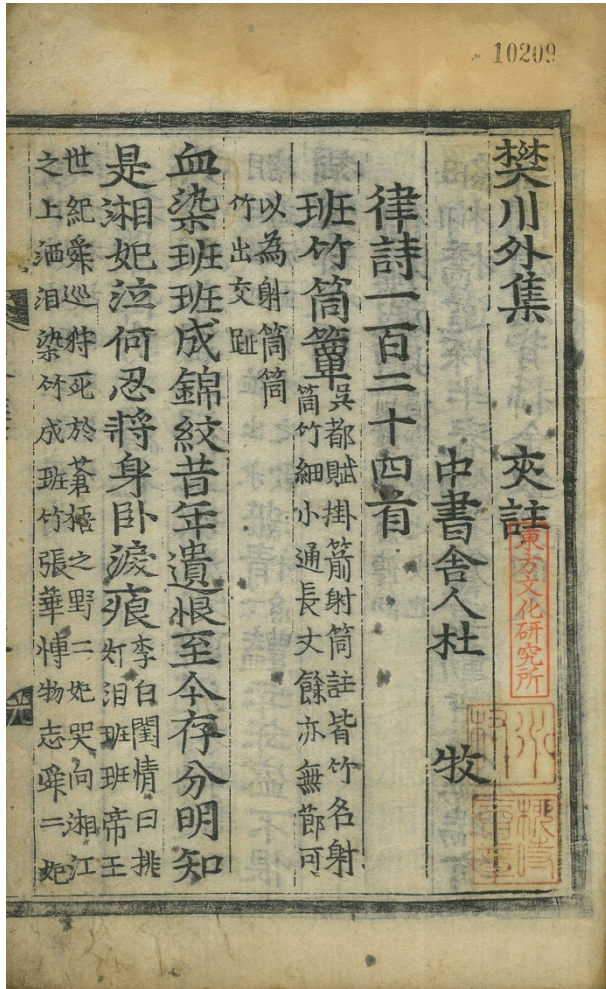 10209
樊川外集 夾註
中書舍人杜 牧
律詩一百二十四首
班竹筒簟吳都賦掛箭射筒註皆竹名射
筒竹細小通長丈餘亦無節可
以為射筒筒
竹出交趾
血染班班成錦紋昔年遺恨至今存分明知
是湘妃泣何忍將身卧淚痕李白閨情曰挑
灯泪班班帝王
世紀舜巡狩死於蒼梧之野二妃哭向湘江
之上洒泪染竹成班竹張華博物志舜二妃
東方文化研究所